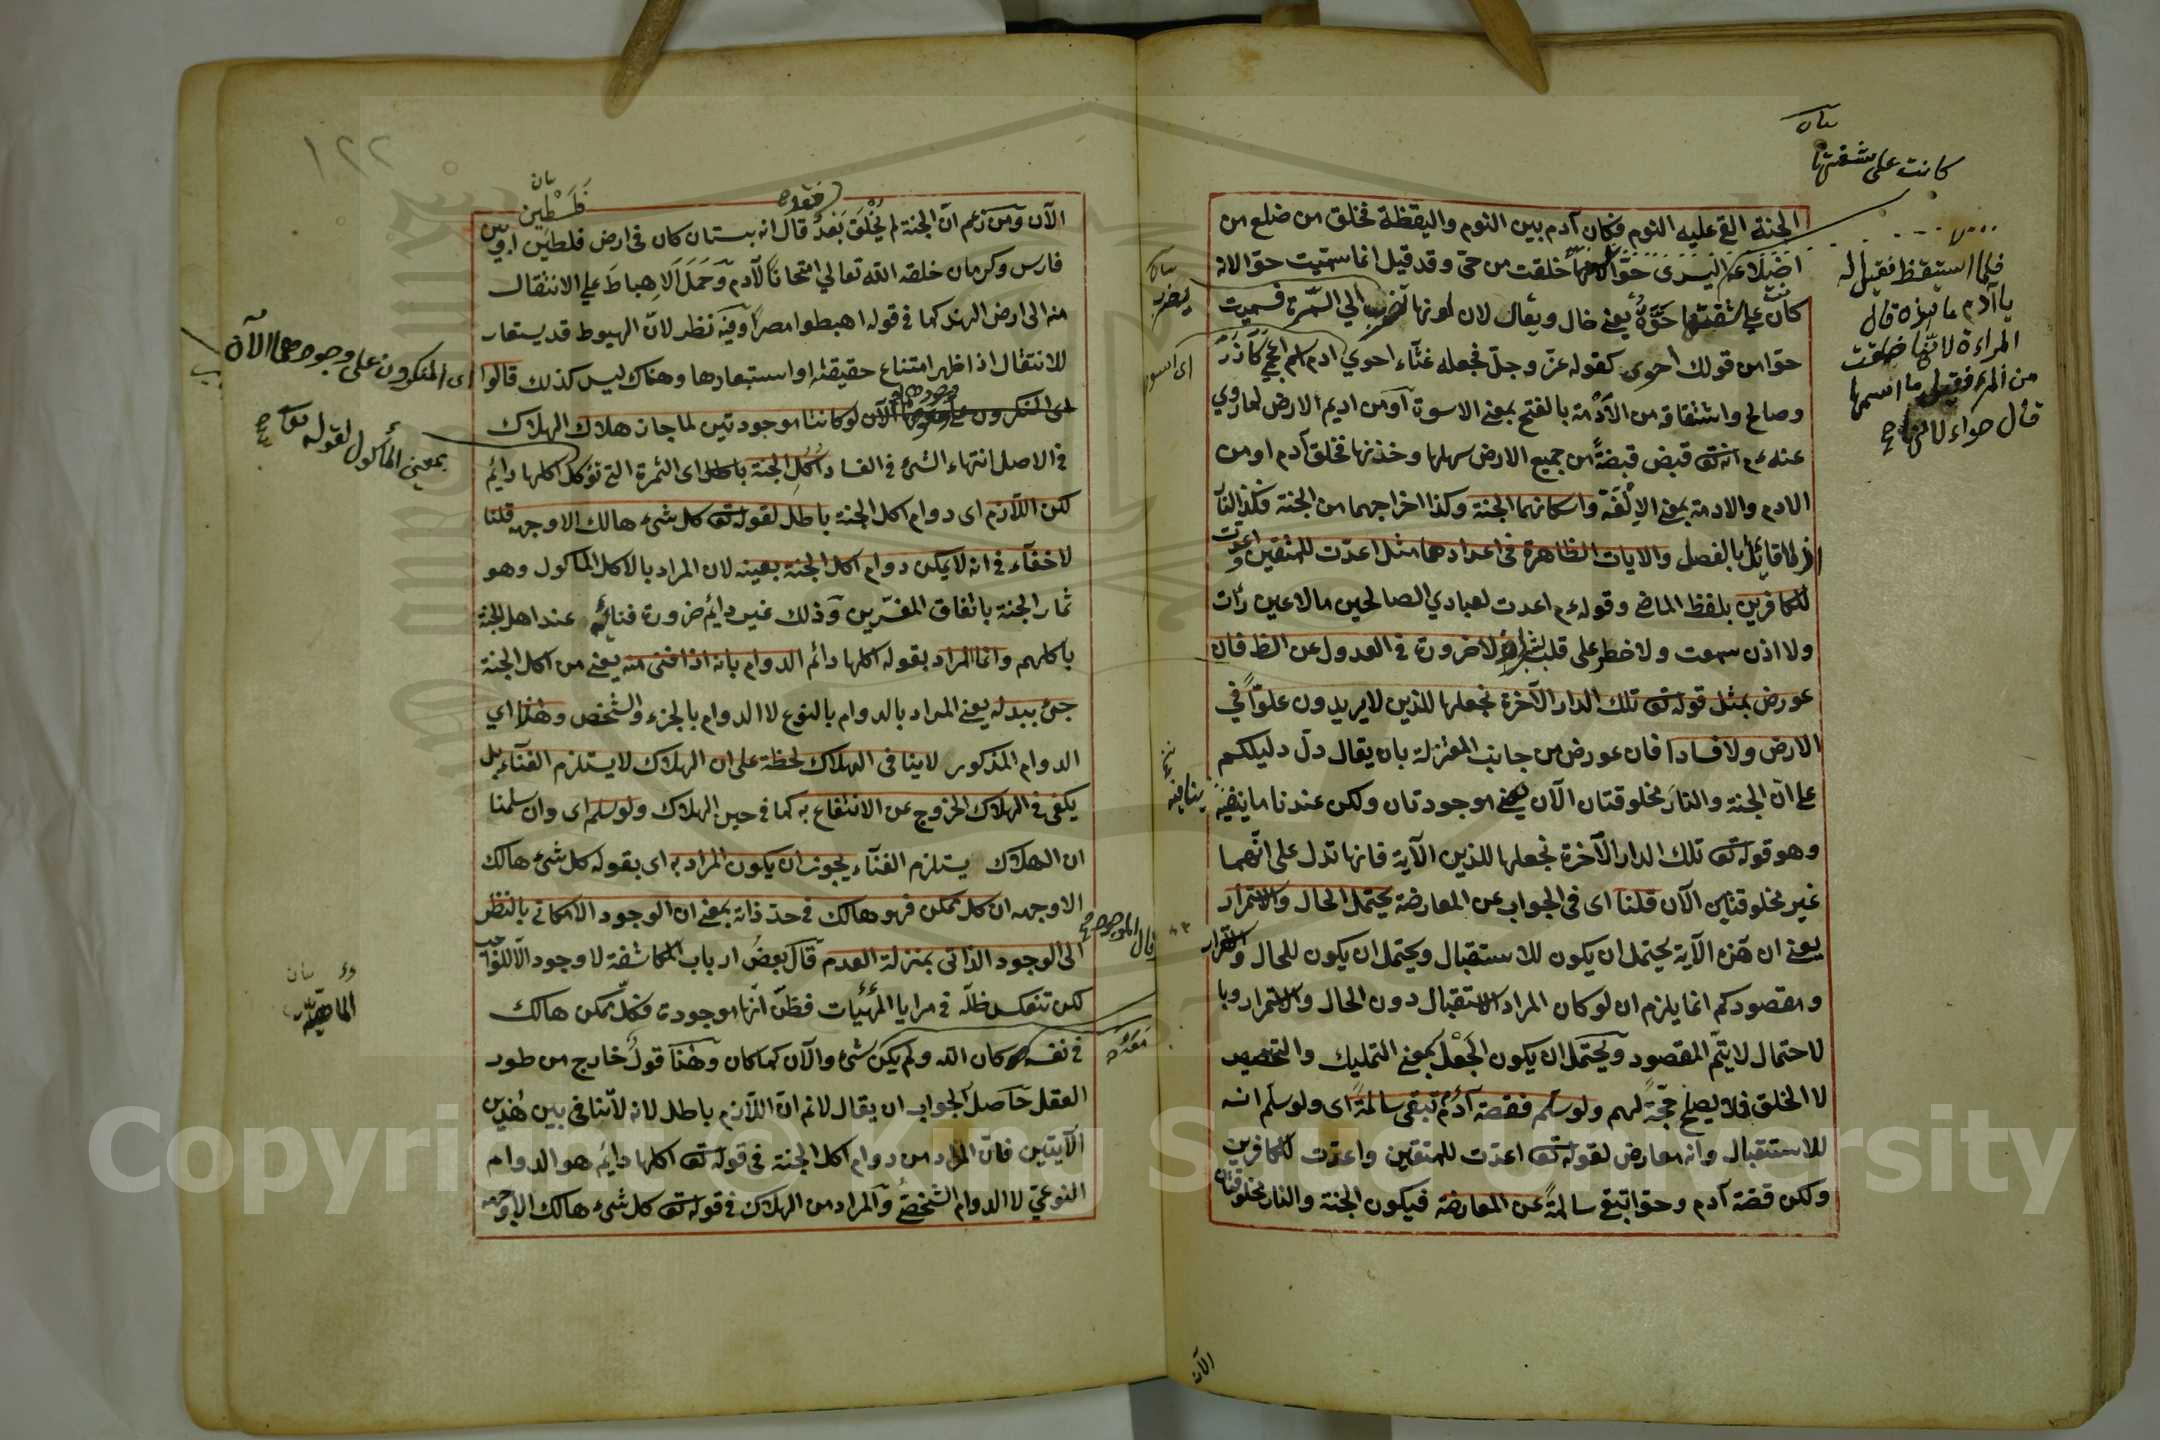 كانت على شفتها
الجنة القي عليه النوم فكان آدم بين النوم واليقظة فخلق من ضلع من
اضلاعه اليسرى حوّا لانها خلقت من حيّ وقد قيل انما سميت حوّا لانه
كان على شفتها حوّة يعني خال ويقال لان لونها تضرب الي السمرة فسميت
حوّا من قولك احوى كقوله عزّ وجلّ فجعله غثاء احوي آدم اسم اعجمي كآذر
وصالح واشتقاقه من الأدمة بالفتح بمعنى الاسوة او من اديم الارض لما روي
عنه عم انه تع قبض قبضة من جميع الارض سهلها وحزنها فخلق آدم او من
الادم والادمة بمعنى الإلفة واسكانهما الجنة وكذا اخراجهما من الجنة فكذا النار
اذ لا قائل بالفصل والايات الظاهرة في اعدادهما مثل اعدّت للمتقين واعدّت
للكافرين بلفظ الماضي وقوله عم اعدت لعبادي الصالحين ما لا عين رأت
ولا اذن سمعت ولا خطر على قلب بشر اذ لا ضرورة في العدول عن الظ فان
عورض بمثل قوله تع تلك الدار الآخرة نجعلها للذين لا يريدون علوّا في
الارض ولا فسادا فان عورض من جانب المعتزلة بان يقال دلّ دليلكم
على انّ الجنة والنار مخلوقتان الآن يعني موجودتان ولكن عندنا ما ينفيه
وهو قوله تع تلك الدار الآخرة نجعلها للذين الآية فانها تدل على انّهما
غير مخلوقتين الآن قلنا اى في الجواب عن المعارضة يحتمل الحال والاستمرار
يعني ان هذه الآية يحتمل ان يكون للاستقبال ويحتمل ان يكون للحال والاستمرار
ومقصودكم انما يلزم ان لو كان المراد الاستقبال دون الحال والاستمرار وبا
لاحتمال لا يتمّ المقصود ويحتمل ان يكون الجعل بمعنى التمليك والتخصيص
لا الخلق فلا يصلح حجّة لهم ولو سلّم فقصة آدم تبقى سالمة اى ولو سلّم انه
للاستقبال وانه معارض لقوله تع اعدّت للمتقين واعدّت للكافرين
ولكن قصة آدم وحوّا تبقى سالمة عن المعارضة فيكون الجنة والنار مخلوقتان
الآن
فلما استيقظ فقيل له
يا آدم ما هذه قال
المراءة لانها خلقت
من المرء فقيل ما اسمها
قال حواء لانها
اى اسود
ينافيه
١٢٢
فلسطين
الآن ومن زعم انّ الجنة لم يُخلَق بَعدُ قال انه بستان كان في ارض فلطين او بين
فارس وكرمان خلقه الله تعالي امتحانا لآدم وحمل الاهباط علي الانتقال
منه الى ارض الهند كما في قوله اهبطوا مصرا وفيه نظر لانّ الهبوط قد يستعار
للانتقال اذا ظهر امتناع حقيقته او استبعادها وهناك ليس كذلك قالوا
اى المنكرون على وجودهما الآن لو كانتا موجودتين لما جاز هلاك الهلاك
في الاصل انتهاء الشئ في الفساد اُكُل الجنة باطل اى الثمرة التي تؤكل اكلها دايم
لكن اللازم اى دوام اكل الجنة باطل لقوله تع كل شئ هالك الا وجهه قلنا
لا خفآء في انه لا يمكن دوام اكل الجنة بعينه لان المراد بالاكل المأكول وهو
ثمار الجنة باتفاق المفسّرين وذلك غير دايم ضرورة فنائه عند اهل الجنة
باكلهم وانما المراد بقوله اكلها دائم الدوام بانه اذا فنى منه يعني من اكل الجنة
جئ ببدله يعني المراد بالدوام بالنوع لا الدوام بالجزء والشخص وهذا اي
الدوام المذكور لا ينافى الهلاك لحظة على ان الهلاك لا يستلزم الفناء بل
يكفى في الهلاك الخروج عن الانتفاع به كما في حين الهلاك ولو سلم اى وان سلمنا
ان الهلاك يستلزم الفنآء يجوز ان يكون المراد به اى بقوله كل شئ هالك
الا وجهه ان كل ممكن فهو هالك في حدّ ذاته بمعنى ان الوجود الامكاني بالنظر
الى الوجود الذاتي بمنزلة العدم قال بعض ارباب المكاشفة لا وجود الّا للواجب
لكن تنعكس ظلّه في مرايا المهيّات فظنّ انّها موجودة فكلّ ممكن هالك
في نفسه كان الله ولم يكن شئ والآن كما كان وهذا قول خارج من طور
العقل حاصل الجواب ان يقال لا نم انّ اللازم باطل لانه لا تنافى بين هذين
الآيتين فانّ المراد من دوام اكل الجنة في قوله تع اكلها دايم هو الدوام
النوعيّ لا الدوام الشخصيّ والمراد من الهلاك في قوله تع كل شئ هالك الا وجهه
اى المنكرون على وجودهما الآن
بمعنى المأكول لقوله تع
الماهيّة
Copyright © King Saud University